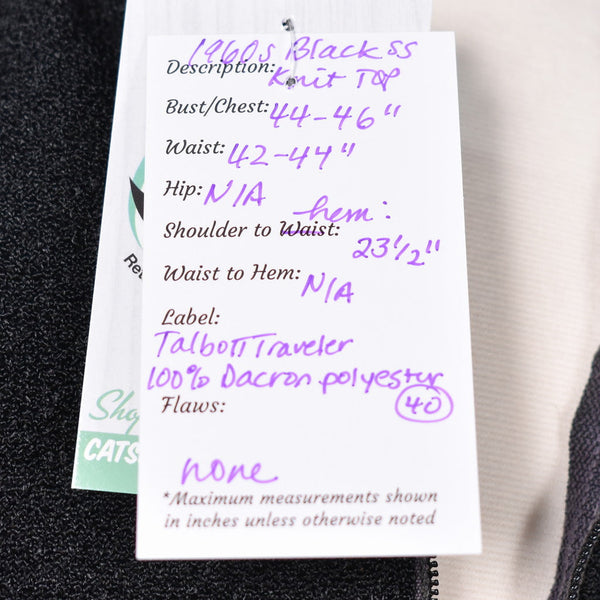 1960s Black SS
Description: Knit Top
Bust/Chest: 44-46"
Waist: 42-44"
Hip: N/A
hem:
Shoulder to Waist: 23 1/2"
Waist to Hem: N/A
Label:
Talbott Traveler
100% Dacron polyester
Flaws: 40
none
*Maximum measurements shown
in inches unless otherwise noted
Re
Sho
CATS